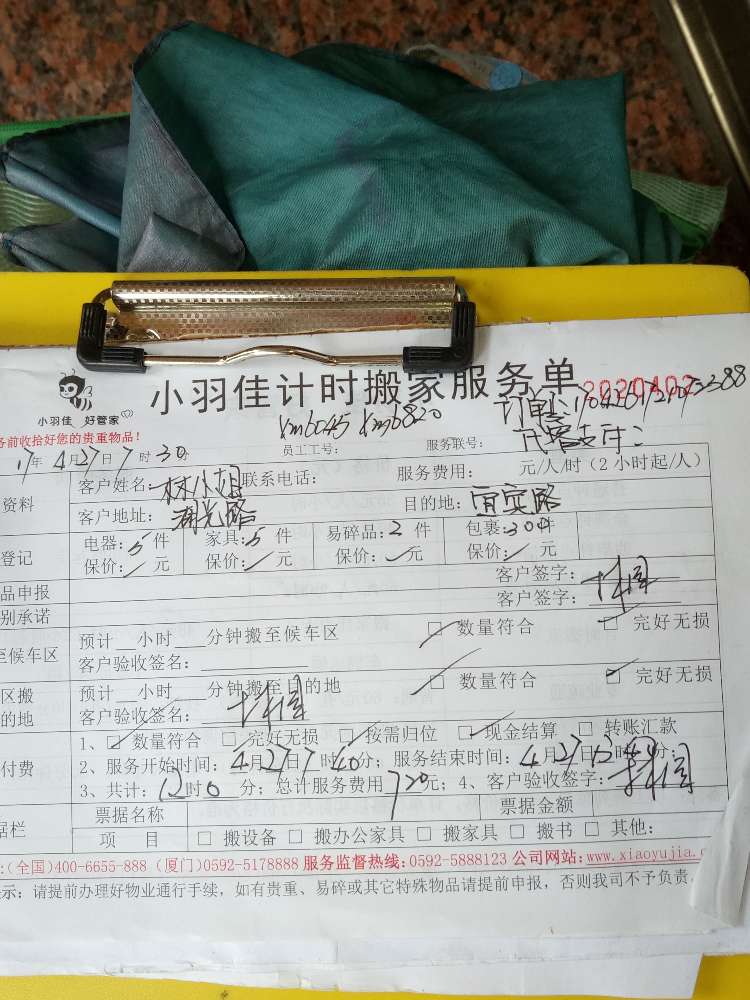 小羽佳计时搬家服务单
小羽佳 好管家
务前收拾好您的贵重物品!
员工工号: xm6045 xm6820 服务联号:
17年4月27日7时30分
资料 客户姓名: 林小姐 联系电话: 服务费用: 元/人/时(2小时起/人)
客户地址: 湖光路 目的地: 宜宾路
登记 电器:5件 家具:5件 易碎品:2件 包裹:30件
保价: 元 保价: 元 保价: 元 保价: 元
品申报 客户签字:
别承诺 客户签字:
至候车区 预计__小时___分钟搬至候车区 ☑ 数量符合 ☑ 完好无损
客户验收签名:
区搬 预计__小时___分钟搬至目的地 ☑ 数量符合 ☑ 完好无损
的地 客户验收签名:
1、☑ 数量符合 ☑ 完好无损 ☑ 按需归位 ☑ 现金结算 □ 转账汇款
付费 2、服务开始时间:4月27日7时40分; 服务结束时间:4月27日
3、共计:12时0分;总计服务费用720元;4、客户验收签字:
票据名称 票据金额
据栏 项 目 □ 搬设备 □ 搬办公家具 □ 搬家具 □ 搬书 □ 其他:
:(全国)400-6655-888 (厦门)0592-5178888 服务监督热线:0592-5888123 公司网站:www.xiaoyujia.
示:请提前办理好物业通行手续,如有贵重、易碎或其它特殊物品请提前申报,否则我司不予负责